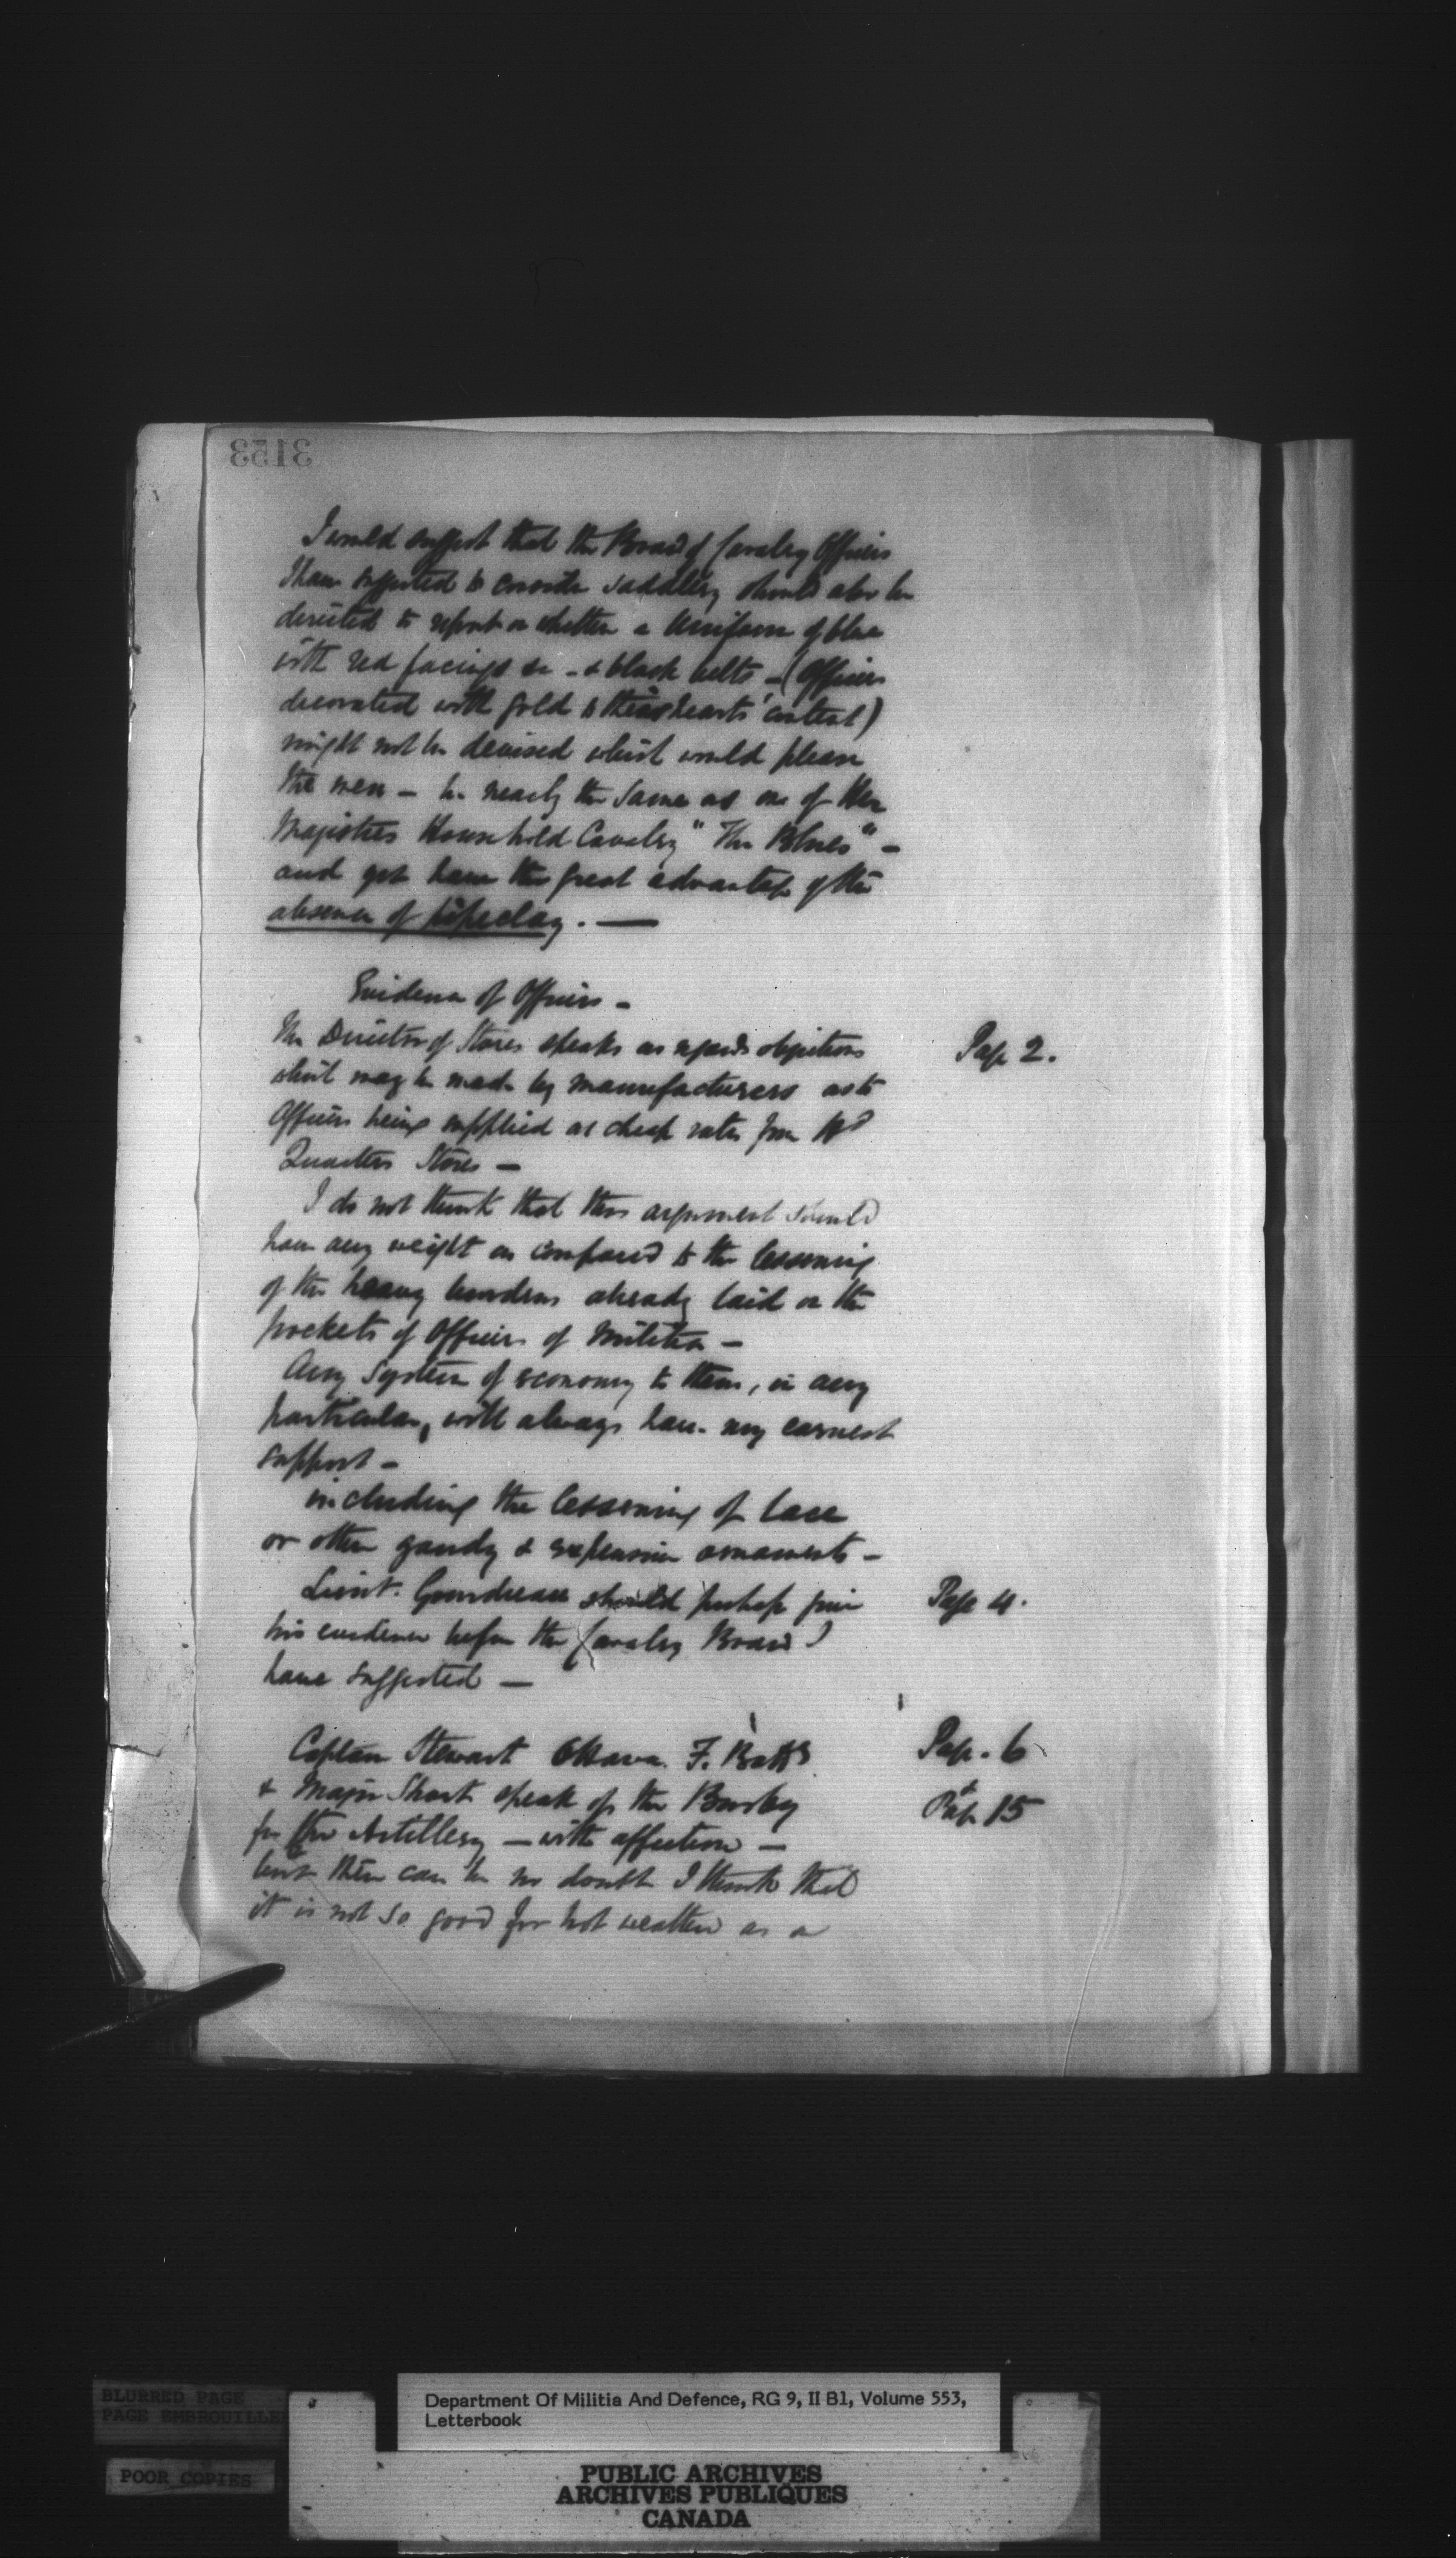 3153
I would suggest that the Board of Cavalry Officers
I have suggested to consider saddlery should also be
directed to report on whether a Uniform of blue
with red facings &c - & black belts - (Officers
decorated with gold to their hearts' content)
might not be devised which would please
the men - be nearly the same as one of Her
Majesties Household Cavalry "The Blues" -
and yet have the great advantage of the
absence of pipeclay. —
Evidence of Officers -
The Director of Stores speaks as regards objections
Page 2.
which may be made by manufacturers as to
Officers being supplied at cheap rates from Hd
Quarters Stores -
I do not think that this argument should
have any weight as compared to the lessening
of the heavy burdens already laid on the
pockets of Officers of Militia -
Any system of economy to them, in any
particular, will always have my earnest
support -
including the lessening of lace
or other gaudy & expensive ornaments -
Lieut. Gourdeau should perhaps give
Page 4.
his evidence before the Cavalry Board I
have suggested —
Captain Stewart Ottawa F. Batty
Page. 6
& Major Short speak of the Busby
& Page 15
for the Artillery - with affection -
but there can be no doubt I think that
it is not so good for hot weather as a
BLURRED PAGE
PAGE EMBROUILLE
POOR COPIES
Department Of Militia And Defence, RG 9, II B1, Volume 553,
Letterbook
PUBLIC ARCHIVES
ARCHIVES PUBLIQUES
CANADA